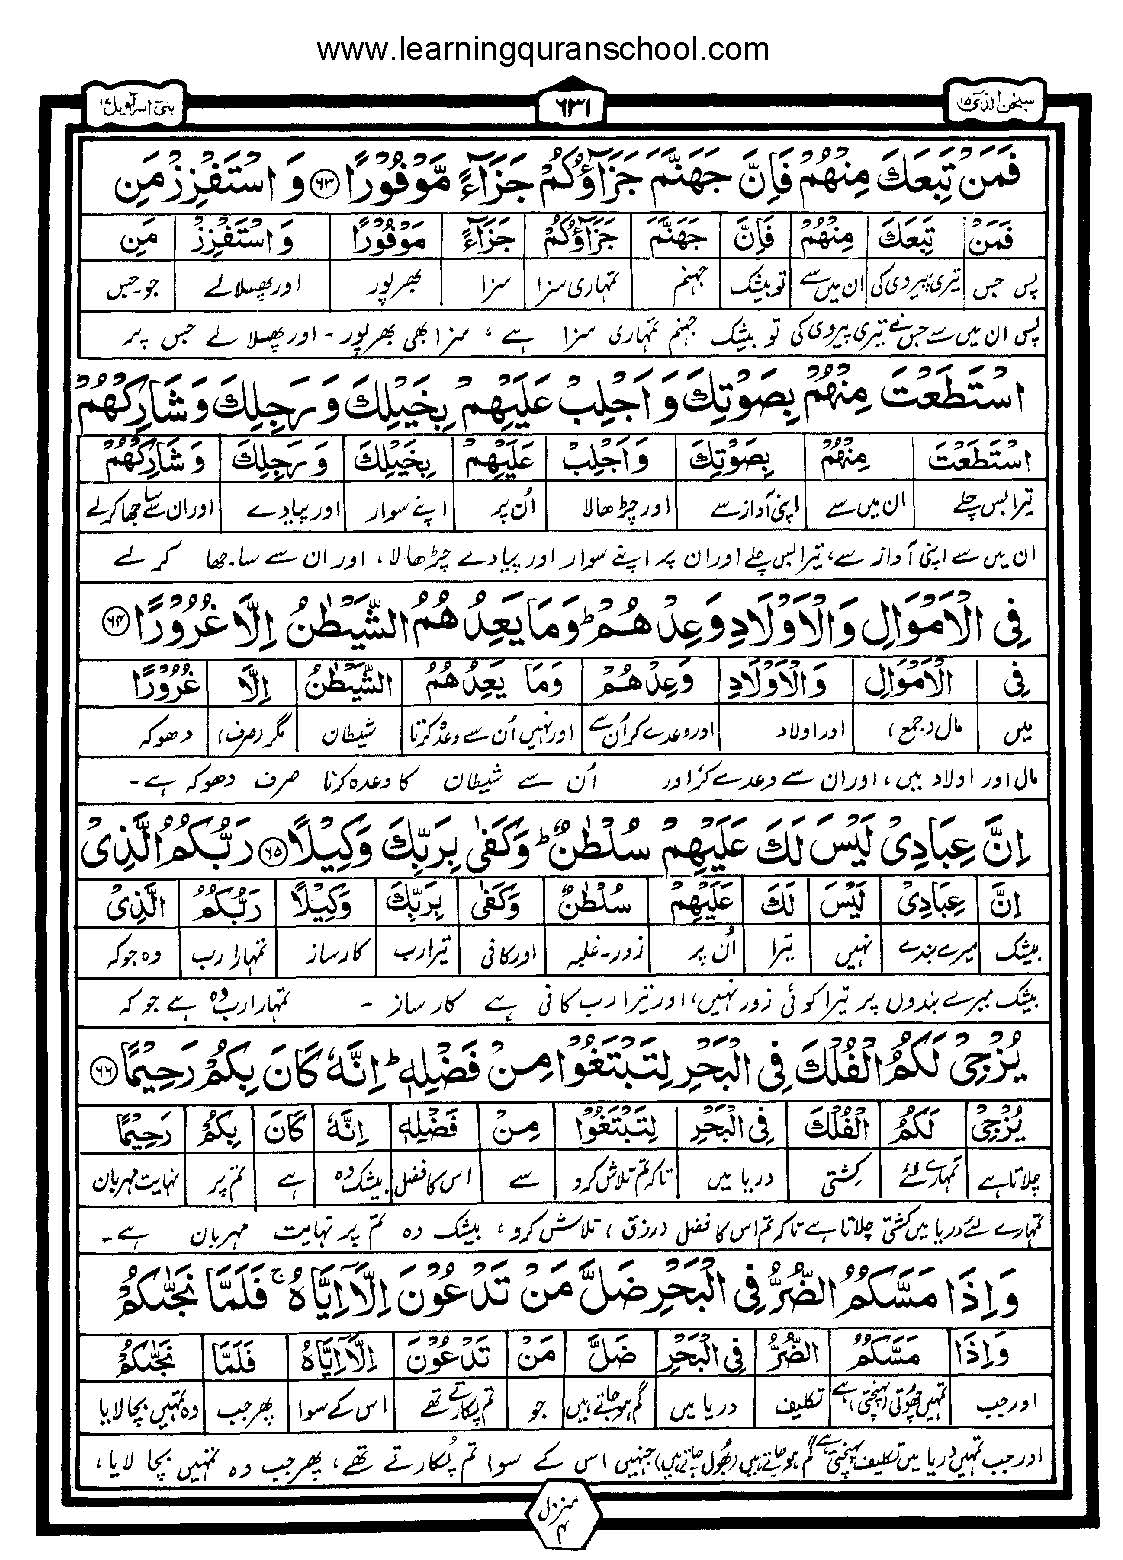 www.learningquranschool.com
سبحن الذی ١٥
٦٣١
بنی اسرآءیل ١٧
فَمَنْ تَبِعَكَ مِنْهُمْ فَاِنَّ جَهَنَّمَ جَزَآؤُكُمْ جَزَآءً مَّوْفُوْرًا ٦٣ وَ اسْتَفْزِزْ مَنِ
فَمَنْ تَبِعَكَ مِنْهُمْ فَاِنَّ جَهَنَّمَ جَزَآؤُكُمْ جَزَآءً مَوْفُوْرًا وَ اسْتَفْزِزْ مَنِ
پس جس تیری پیروی کی ان میں سے تو بیشک جہنم تمہاری سزا سزا بھرپور اور پھسلالے جو۔جس
پس ان میں سے جس نے تیری پیروی کی تو بیشک جہنم تمہاری سزا ہے، سزا بھی بھرپور۔ اور پھسلا لے جس پر
اسْتَطَعْتَ مِنْهُمْ بِصَوْتِكَ وَ اَجْلِبْ عَلَيْهِمْ بِخَيْلِكَ وَ رَجِلِكَ وَ شَارِكْهُمْ
اسْتَطَعْتَ مِنْهُمْ بِصَوْتِكَ وَ اَجْلِبْ عَلَيْهِمْ بِخَيْلِكَ وَ رَجِلِكَ وَ شَارِكْهُمْ
تیرا بس چلے ان میں سے اپنی آواز سے اور چڑھا لا اُن پر اپنے سوار اور پیادے اور ان سے ساجھا کر لے
ان میں سے اپنی آواز سے، تیرا بس چلے اور ان پر اپنے سوار اور پیادے چڑھا لا، اور ان سے ساجھا کر لے
فِی الْاَمْوَالِ وَ الْاَوْلَادِ وَ عِدْهُمْ ؕ وَ مَا يَعِدُهُمُ الشَّيْطٰنُ اِلَّا غُرُوْرًا ٦٤
فِی الْاَمْوَالِ وَ الْاَوْلَادِ وَعِدْهُمْ وَمَا يَعِدُهُمُ الشَّيْطٰنُ اِلَّا غُرُوْرًا
میں مال (جمع) اور اولاد اور وعدے کر اُن سے اور نہیں اُن سے وعدہ کرتا شیطان مگر (صرف) دھوکہ
مال اور اولاد میں، اور ان سے وعدے کر اور اُن سے شیطان کا وعدہ کرنا صرف دھوکہ ہے۔
اِنَّ عِبَادِیْ لَيْسَ لَكَ عَلَيْهِمْ سُلْطٰنٌ ؕ وَ كَفٰی بِرَبِّكَ وَكِيْلًا ٦٥ رَبُّكُمُ الَّذِیْ
اِنَّ عِبَادِیْ لَيْسَ لَكَ عَلَيْهِمْ سُلْطٰنٌ وَ كَفٰی بِرَبِّكَ وَكِيْلًا رَبُّكُمُ الَّذِیْ
بیشک میرے بندے نہیں تیرا اُن پر زور۔غلبہ اور کافی تیرا رب کارساز تمہارا رب وہ جو کہ
بیشک میرے بندوں پر تیرا کوئی زور نہیں، اور تیرا رب کافی ہے کارساز ۔ تمہارا رب وہ ہے جو کہ
يُزْجِیْ لَكُمُ الْفُلْكَ فِی الْبَحْرِ لِتَبْتَغُوْا مِنْ فَضْلِهٖ ؕ اِنَّهٗ كَانَ بِكُمْ رَحِيْمًا ٦٦
يُزْجِیْ لَكُمُ الْفُلْكَ فِی الْبَحْرِ لِتَبْتَغُوْا مِنْ فَضْلِهٖ اِنَّهٗ كَانَ بِكُمْ رَحِيْمًا
چلاتا ہے تمہارے لئے کشتی دریا میں تاکہ تم تلاش کرو سے اس کا فضل بیشک وہ ہے تم پر نہایت مہربان
تمہارے لئے دریا میں کشتی چلاتا ہے تاکہ تم اس کا فضل (رزق) تلاش کرو، بیشک وہ تم پر نہایت مہربان ہے۔
وَ اِذَا مَسَّكُمُ الضُّرُّ فِی الْبَحْرِ ضَلَّ مَنْ تَدْعُوْنَ اِلَّآ اِيَّاهُ ۚ فَلَمَّا نَجّٰىكُمْ
وَ اِذَا مَسَّكُمُ الضُّرُّ فِی الْبَحْرِ ضَلَّ مَنْ تَدْعُوْنَ اِلَّآ اِيَّاهُ فَلَمَّا نَجّٰىكُمْ
اور جب تمہیں چھوتی (پہنچتی) ہے تکلیف دریا میں گم ہو جاتے ہیں جو تم پکارتے تھے اس کے سوا پھر جب وہ تمہیں بچا لایا
اور جب تمہیں دریا میں تکلیف پہنچتی ہے گم ہو جاتے ہیں (بھول جاتے ہیں) جنہیں اس کے سوا تم پکارتے تھے، پھر جب وہ تمہیں بچا لایا،
منزل
٤